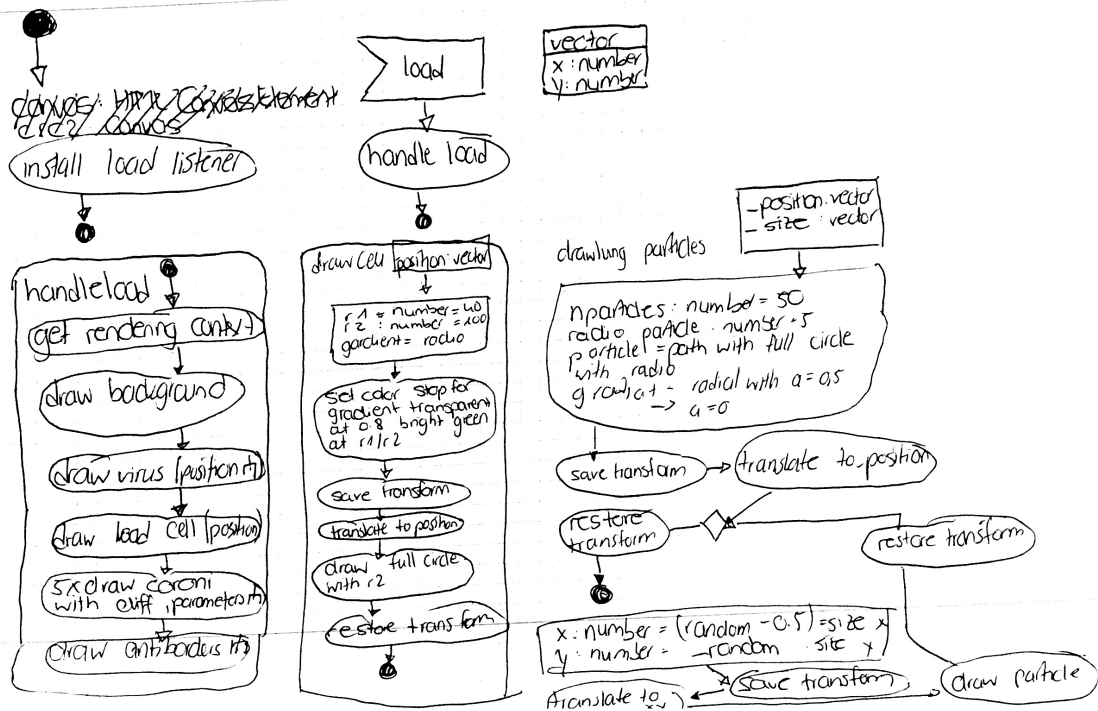 install load listener
load
handle load
vector
x : number
y : number
handleload
get rendering
draw background
draw virus (position
draw load cell (position)
5x draw coroni
with diff , parameters
draw antiborders
draw cell position : vector
r1 = number = 40
r2 : number = 100
gardient = radio
set color stop for
gradient transparent
at 0.8 bright green
at r1/r2
save transform
translate to position
draw full circle
with r2
restore transform
- position : vector
- size : vector
particles
nparticles : number = 50
radio paticle : number = 5
particle = path with full circle
with radio
radial with a = 0,5
-> a = 0
save transform
translate to _position
restore
transform
restore transform
x : number = (random - 0.5) = size x
y : number = - random . size y
save transform
draw particle
translate to
xy